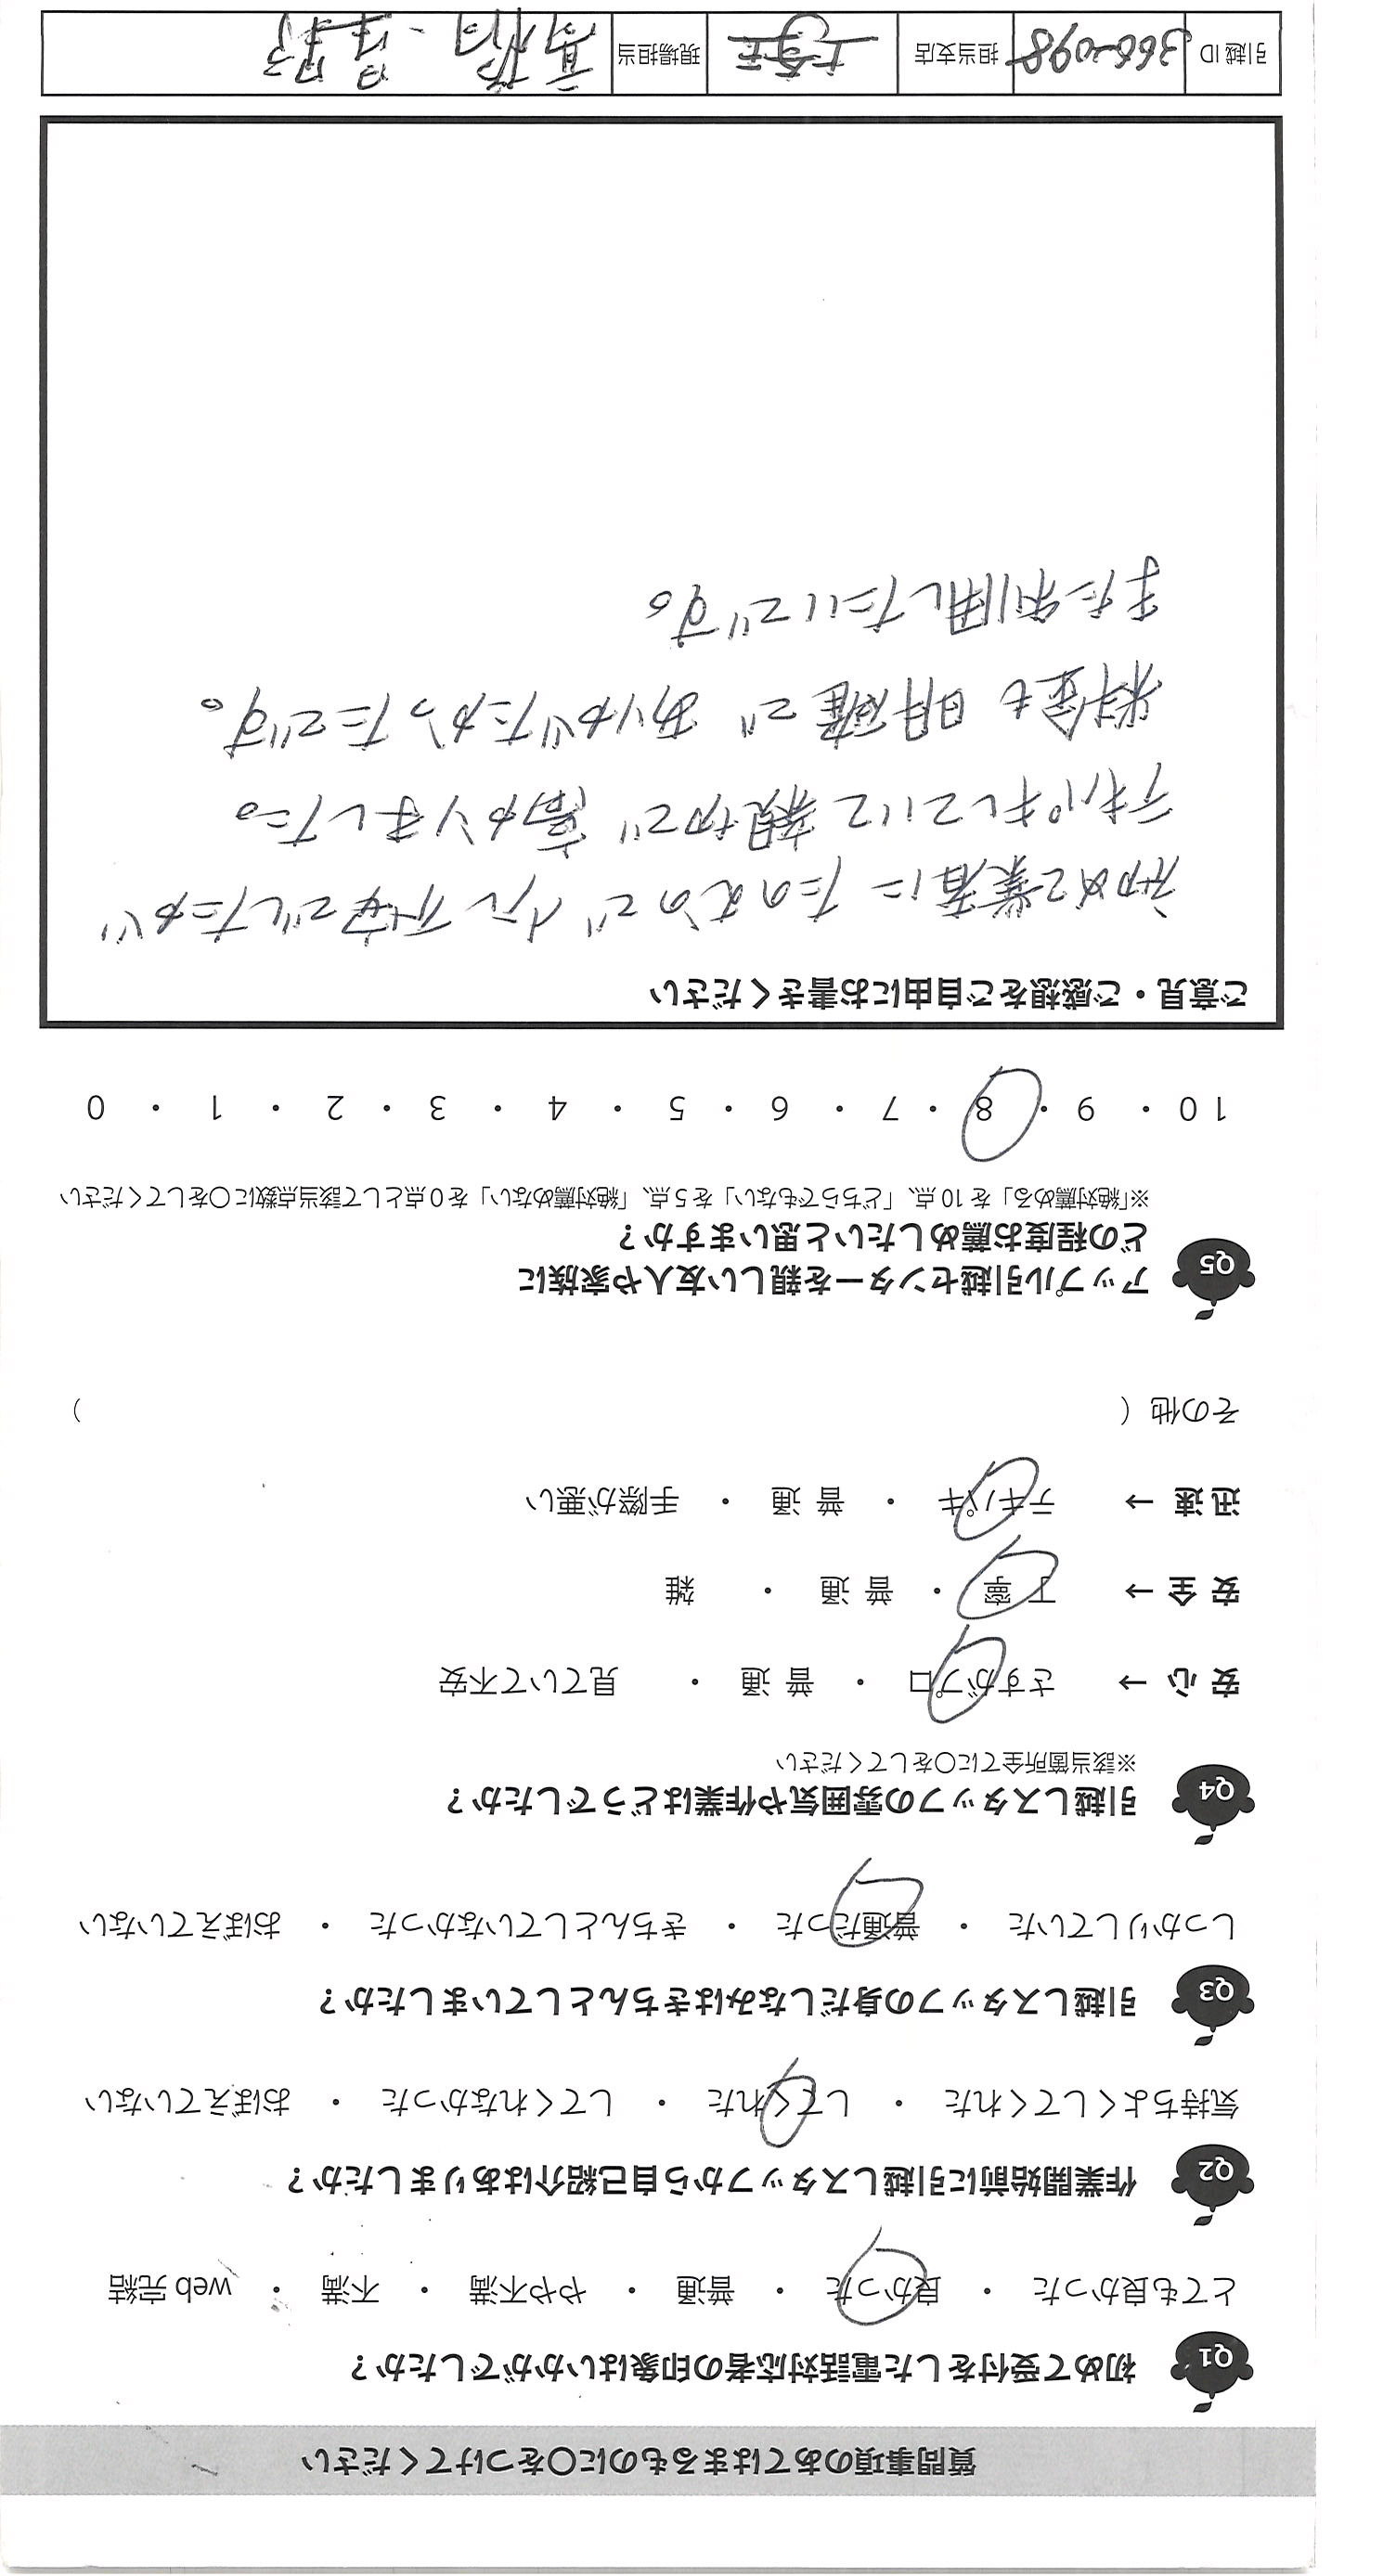 質問事項のあてはまるものに○をつけてください
Q1 初めて受付をした電話対応者の印象はいかがでしたか？
とても良かった ・ 良かった ・ 普通 ・ やや不満 ・ 不満 ・ web 完結
Q2 作業開始前に引越しスタッフから自己紹介はありましたか？
気持ちよくしてくれた ・ してくれた ・ してくれなかった ・ おぼえていない
Q3 引越しスタッフの身だしなみはきちんとしていましたか？
しっかりしていた ・ 普通だった ・ きちんとしていなかった ・ おぼえていない
Q4 引越しスタッフの雰囲気や作業はどうでしたか？
※該当箇所全てに○をしてください
安 心 → さすがプロ ・ 普 通 ・ 見ていて不安
安 全 → 丁 寧 ・ 普 通 ・ 雑
迅 速 → テキパキ ・ 普 通 ・ 手際が悪い
その他（ ）
Q5 アップル引越センターを親しい友人や家族に
どの程度お薦めしたいと思いますか？
※「絶対薦める」を 10 点、「どちらでもない」を 5 点、「絶対薦めない」を 0 点として該当点数に○をしてください
10 ・ 9 ・ 8 ・ 7 ・ 6 ・ 5 ・ 4 ・ 3 ・ 2 ・ 1 ・ 0
ご意見・ご感想をご自由にお書きください
初めて業者にたのむので 少し不安でしたが
テキパキしていて親切で 助かりました。
料金も明確で ありがたかったです。
また利用したいです。
引越 ID 担当支店 現場担当 高橋